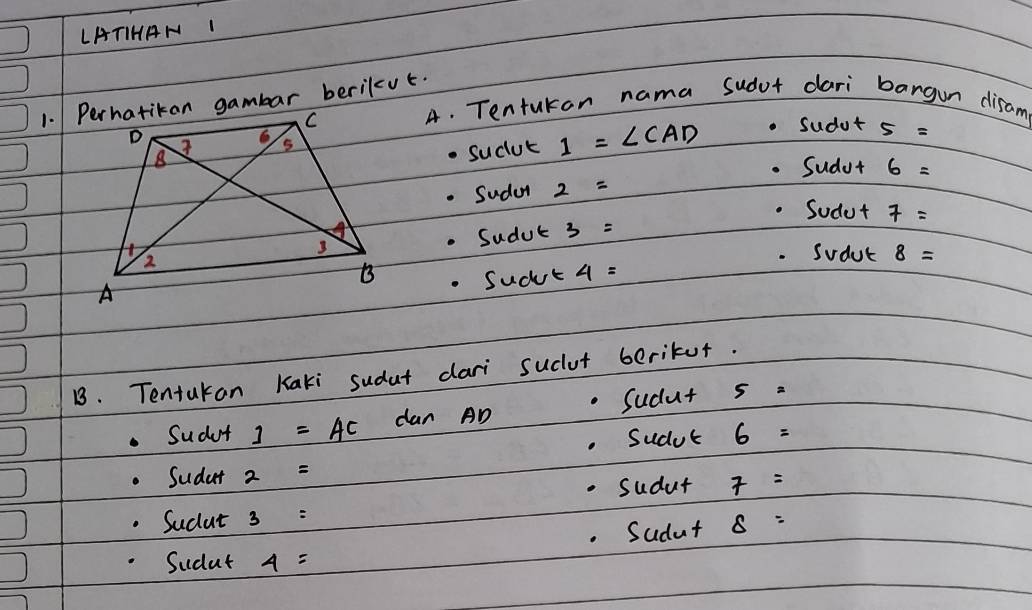 LATIHAN 1
1. Perhatikan gambar berikut.
D 7 6 C
8 5
1 2 3 4
A B
A. Tentukan nama sudut dari bangun disam
• Sudut 1 = ∠CAD
• Sudut 2 =
• Sudut 3 =
• Sudut 4 =
• Sudut 5 =
• Sudut 6 =
• Sudut 7 =
• Sudut 8 =
B. Tentukan kaki sudut dari sudut berikut.
• Sudut 1 = AC dan AD
• Sudut 2 =
• Sudut 3 =
• Sudut 4 =
• Sudut 5 =
• Sudut 6 =
• Sudut 7 =
• Sudut 8 =